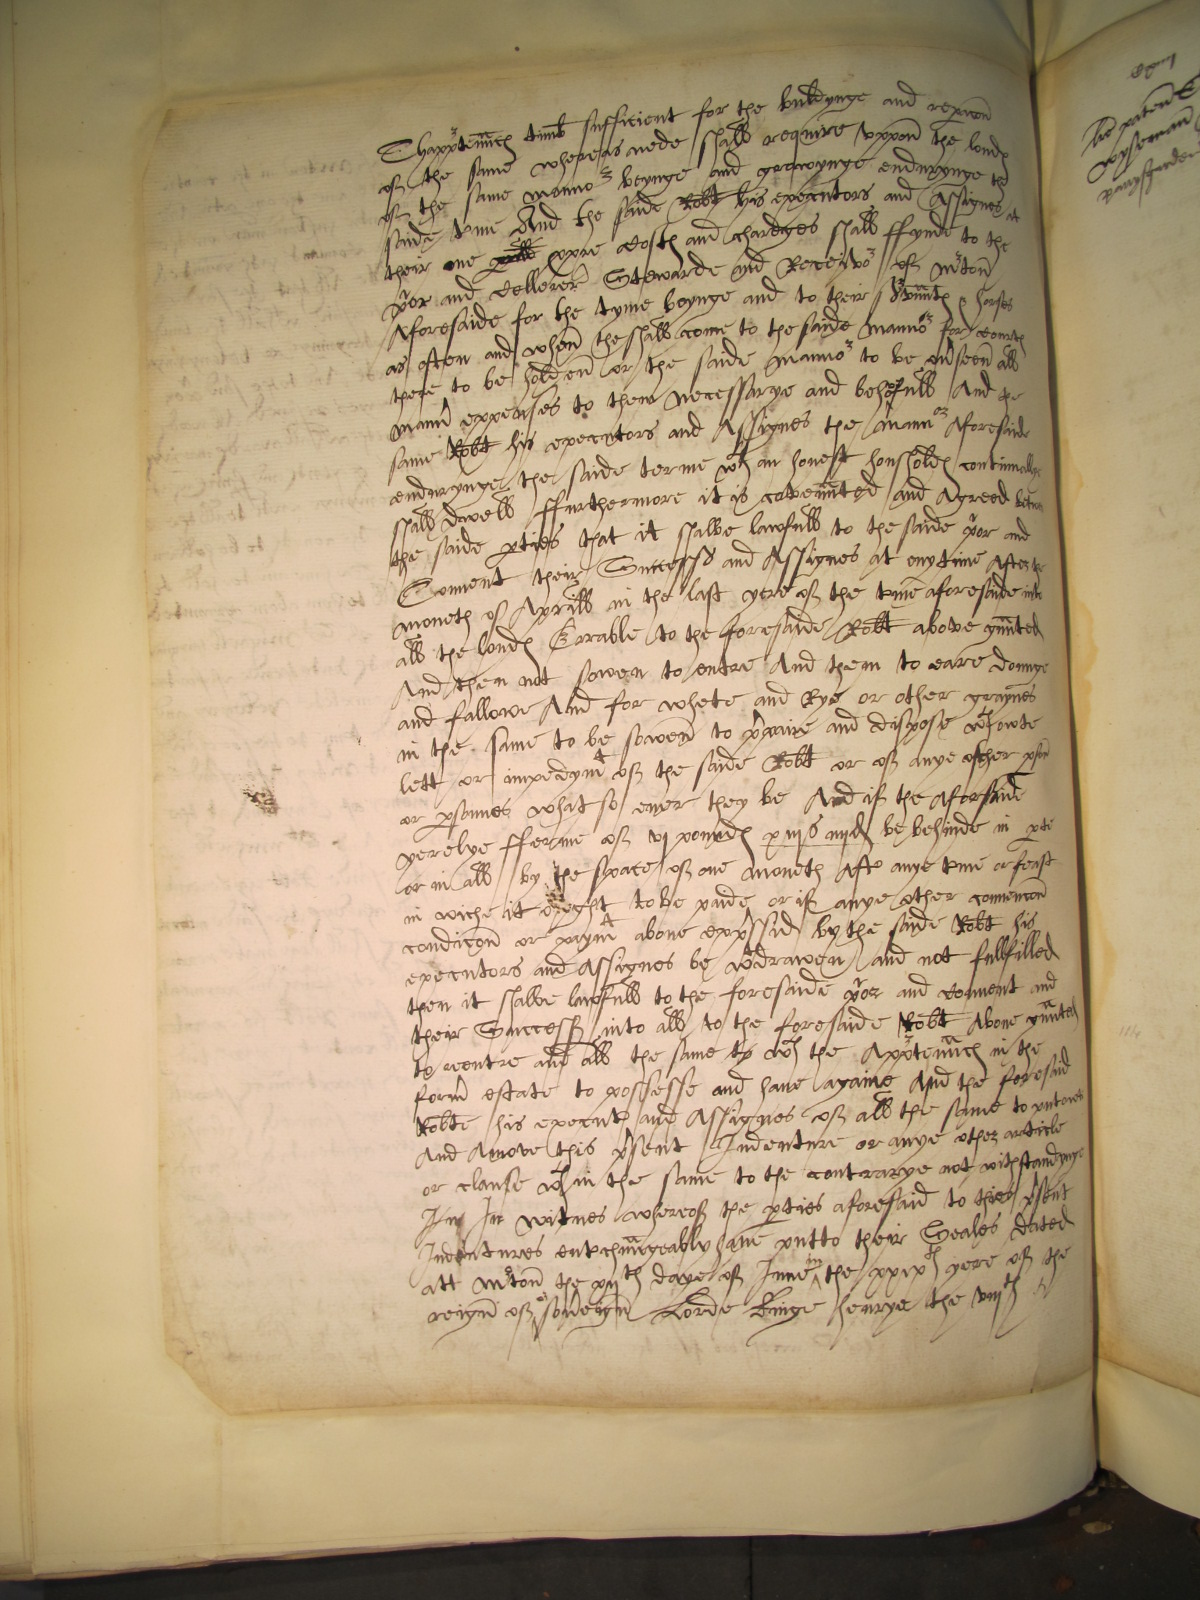 Thapptennch timb sufficient for the buldynge and repacon
of the same whereas nede shall require uppon the londs
of the same manno beynge and growynge endurynge the
saide t'me And the saide Robt his executors and Assignes at
their one ppre costs and chardges shall ffynde to the
p'or and Cellerer Stewarde and Receivo of M'ton
Aforesaide for the tyme beynge and to their s'vnts & horses
as often and when the shall come to the saide manno for courts
there to be holden or the saide manno to be ov'seen all
mann' expenses to them necessarye and behofull And the
same Robt his executors and Assignes the mann' Aforesaide
endurynge the saide terme wth an honest housholde continually
shall dwell ffurthermore it is covennted and Agreed betwen
the saide pties that it shalbe lawfull to the saide p'or and
Convent their Success' and Assignes at enytime After the
moneth of Aprill in the last yere of the t'me aforesaide into
all the londs Errable to the foresaide Robt above g'nted
And then not sowen to entre And them to eare dounge
and fallowe And for whete and Rye or other graynes
in the same to be sowen to p'paire and dispose wthowte
lett or impedym't of the saide Robt or of anye other pson
or psonnes what so ever they be And if the Aforsaide
yerelye fferme of vj pounds xiijs iiijd be behinde in pte
or in all by the space of one moneth aft' anye t'me or feast
in wiche it oweght to be paide or if anye other convencon
condicon or paym't above exp'ssid by the saide Robt his
executors and Assignes be wdrawen and not fullfilled
then it shalbe lawfull to the foresaide p'or and Convent and
their Success' into all to the foresaide Robt Above g'nted
to reentre and all the same to wth the Apptennch in the
form' estate to possesse and have againe And the foresaid
Robte his executs and Assignes of all the same to putowt
And Amove this p'sent Indenture or anye other article
or clause wthin the same to the contrarye not withstandynge
In In witnes whereof the pties aforesaid to thies p'sent
Indentures entrchaungeably have putto their Seales Dated
att M'ton the xijth daye of June in the xxixth yere of the
reign of o' sov'eign Lorde Kinge Henrye the viijth